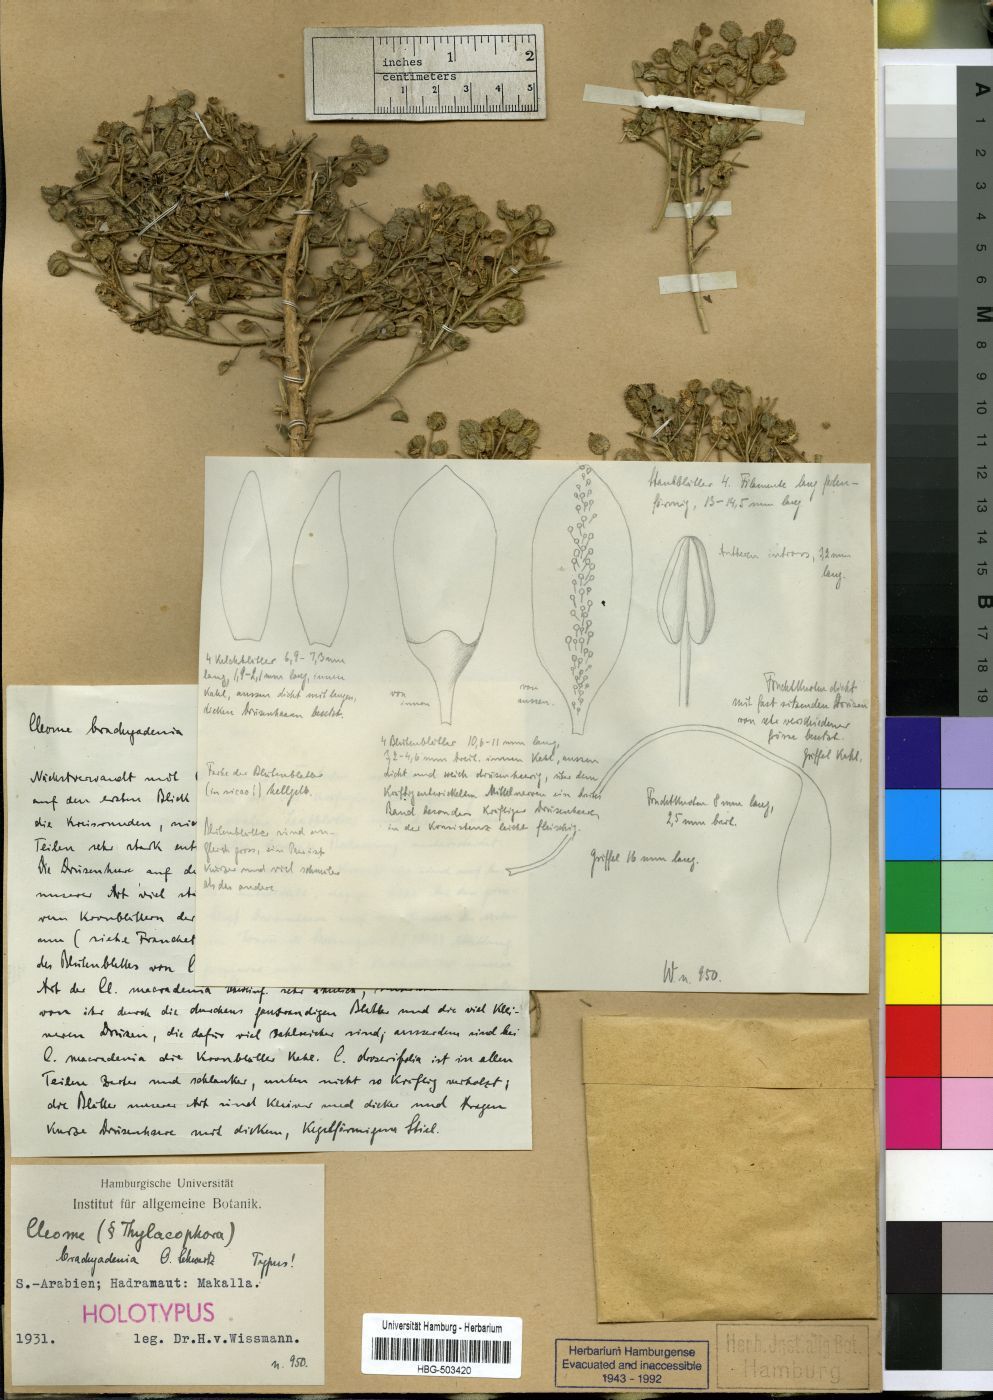 inches 1 2
centimeters
1 2 3 4 5
Staubblätter 4. Filamente lang
förmig, 13-14,5 mm lang
Antheren intrors, 3,2 mm
lang.
4 Kelchblätter 6,9-7,3 mm
lang, 1,9-2,1 mm , innen
Kahl, aussen dicht mit langen,
dicken Drüsenhaaren besetzt.
von
innen
von
aussen.
Fruchtknoten dicht
mit fast sitzenden Drüsen
von sehr verschiedener
Grösse besetzt.
Griffel Kahl.
4 Blütenblätter 10,6-11 mm lang,
3,2-4,6 mm breit. innen Kahl, aussen
dicht und weich drüsenhaarig, über dem
Kräftig entwickelten Mittelnerven ein
Band besonders Kräftiger Drüsenhaare,
in der Konsistenz leicht fleischig.
Farbe der Blütenblätter
(in sicco!) hellgelb.
Blütenblätter sind un-
gleich gross, ein Paar ist
Kürzer und viel schmäler
als das andere.
Fruchtknoten 8 mm lang,
2,5 mm breit.
Griffel 16 mm lang.
W. n. 950.
Cleome brachyadenia
Nächstverwandt mit
auf den ersten Blick
die Kreisrunden,
Teilen sehr stark
Die Drüsenhaare auf
unserer Art viel
von Kronblättern der
(siehe Franchet
des Blütenblattes von C
Art der Cl. macradenia sehr ähnlich,
von ihr durch die durchaus ganzrandigen Blätter und die viel Klei-
neren Drüsen, die dafür viel zahlreicher sind; ausserdem sind bei
C. macradenia die Kronblätter Kahl. C. droserifolia ist in allen
Teilen zarter und schlanker, unten nicht so Kräftig verholzt;
die Blätter unserer Art sind Kleiner und dicker und tragen
Kurze Drüsenhaare mit dickem, Kegelförmigem Stiel.
Hamburgische Universität
Institut für allgemeine Botanik.
Cleome (§ Thylacophora)
brachyadenia O. Schwartz Typus!
S.-Arabien; Hadramaut: Makalla.
HOLOTYPUS
1931. leg. Dr.H.v.Wissmann.
n. 950.
Universität Hamburg - Herbarium
HBG-503420
Herbarium Hamburgense
Evacuated and inaccessible
1943 - 1992
Herb. Inst. allg. Bot.
Hamburg
A
1
2
3
4
5
6
M
8
9
10
11
12
13
14
15
B
17
18
19